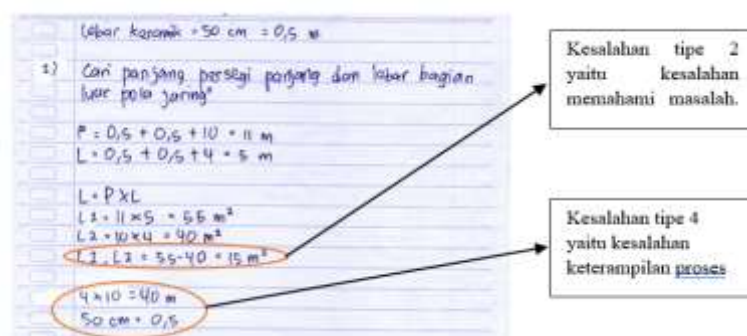 Lebar keramik = 50 cm = 0,5 m
1) Cari panjang persegi panjang dan lebar bagian
luar pola jaring"
P = 0,5 + 0,5 + 10 = 11 m
L = 0,5 + 0,5 + 4 = 5 m
L = P X L
L1 = 11 x 5 = 55 m²
L2 = 10 x 4 = 40 m²
L1, L2 = 55-40 = 15 m²
4 x 10 = 40 m
50 cm = 0,5
Kesalahan tipe 2
yaitu kesalahan
memahami masalah.
Kesalahan tipe 4
yaitu kesalahan
keterampilan proses